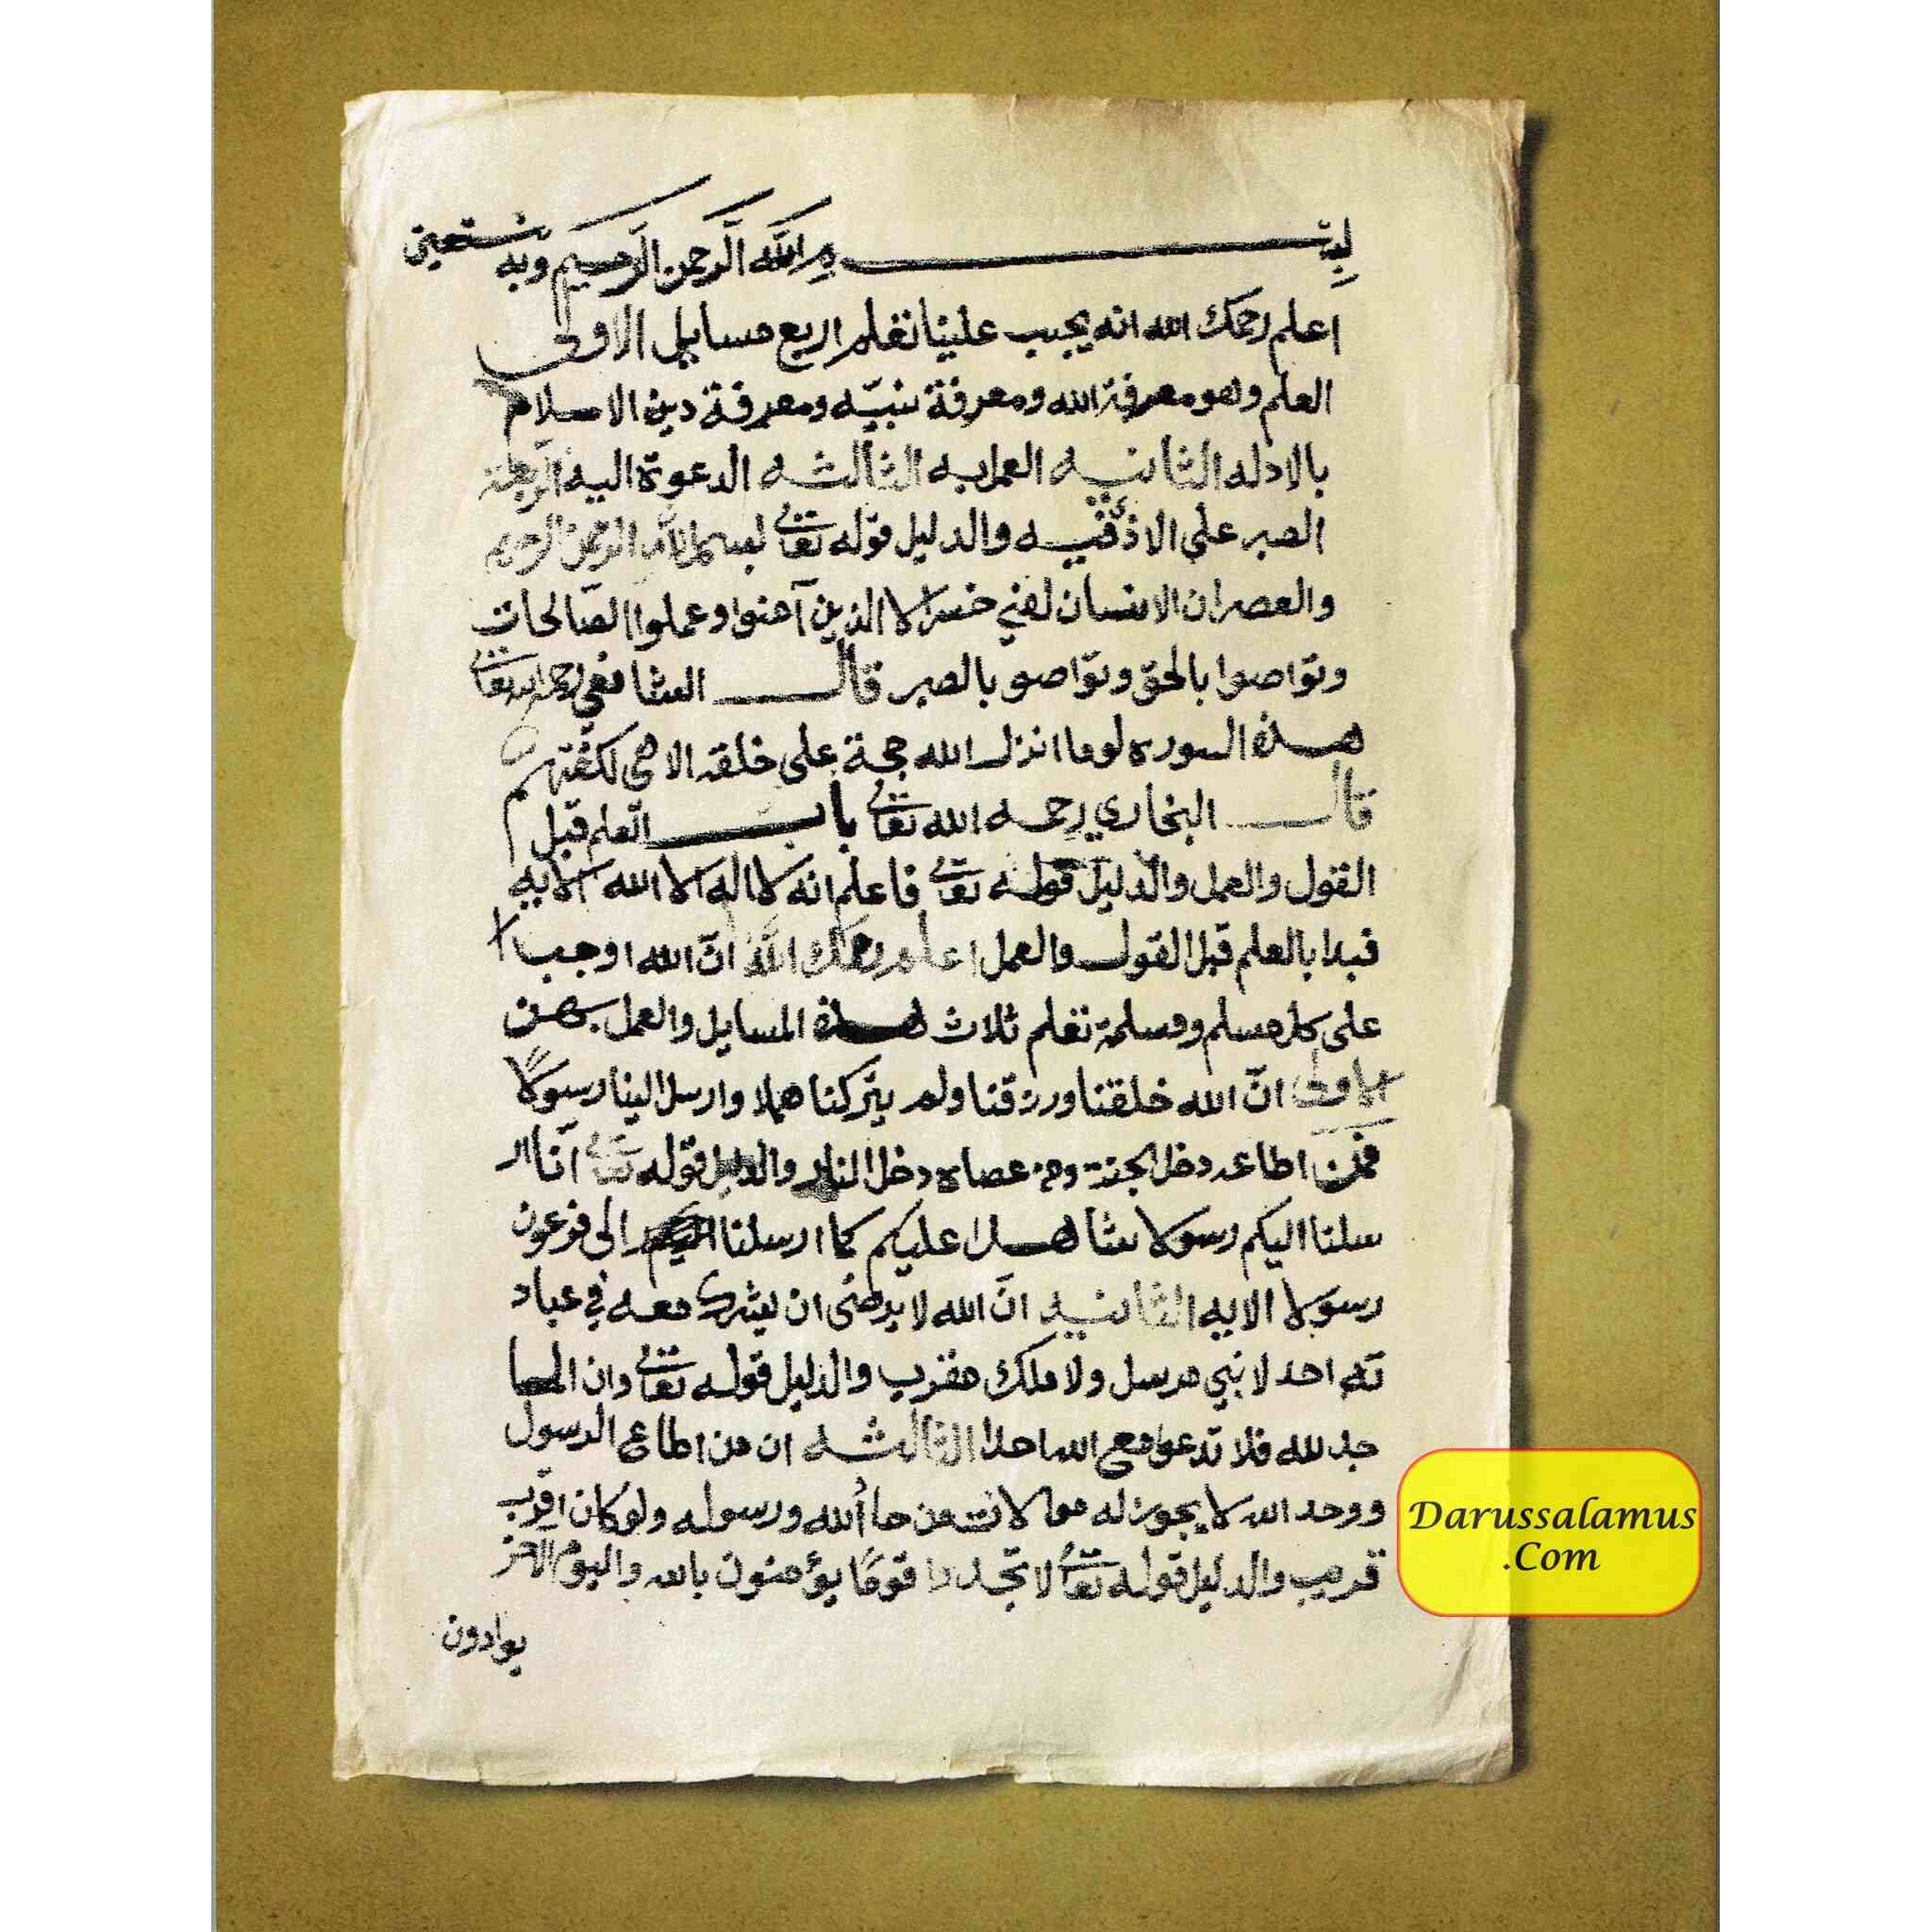 بسم الله الرحمن الرحيم وبه نستعين
اعلم رحمك الله انه يجب علينا تعلم اربع مسايل الاولى
العلم وهو معرفة الله ومعرفة نبيّه ومعرفة دين الاسلام
بالادله الثانيه العمل به الثالثه الدعوة اليه الرابعة
الصبر على الاذى فيه والدليل قوله تعالى بسم الله الرحمن الرحيم
والعصر ان الانسان لفي خسر الا الذين آمنوا وعملوا الصّالحات
وتواصوا بالحق وتواصو بالصبر قال الشافعي رحمه الله تعالى
هذه السوره لو ما انزل الله حجة على خلقه الا هي لكفتهم
قال البخاري رحمه الله تعالى باب العلم قبل
القول والعمل والدليل قوله تعالى فاعلم انه لا اله الا الله الايه
فبدا بالعلم قبل القول والعمل اعلم رحمك الله انّ الله اوجب
على كل مسلم ومسلمة تعلم ثلاث هذه المسايل والعمل بهن
الاولى انّ الله خلقنا ورزقنا ولم يتركنا هملا وارسل الينا رسولاً
فمن اطاعه دخل الجنة ومن عصاه دخل النار والدليل قوله تعالى انّا ار
سلنا اليكم رسولا شاهدا عليكم كما ارسلنا الى فرعون
رسولا الايه الثانيه انّ الله لا يرضى ان يشرك معه في عباد
ته احد لا نبي مرسل ولا ملك مقرب والدليل قوله تعالى وان المسا
جد لله فلا تدعوا مع الله احدا الثالثه ان من اطاع الرسول
ووحد الله لا يجوز له موالات من حاد الله ورسوله ولو كان اقرب
قريب والدليل قوله تعالى لا تجد قومًا يؤمنون بالله واليوم الاخر
يوادون
Darussalamus
.Com